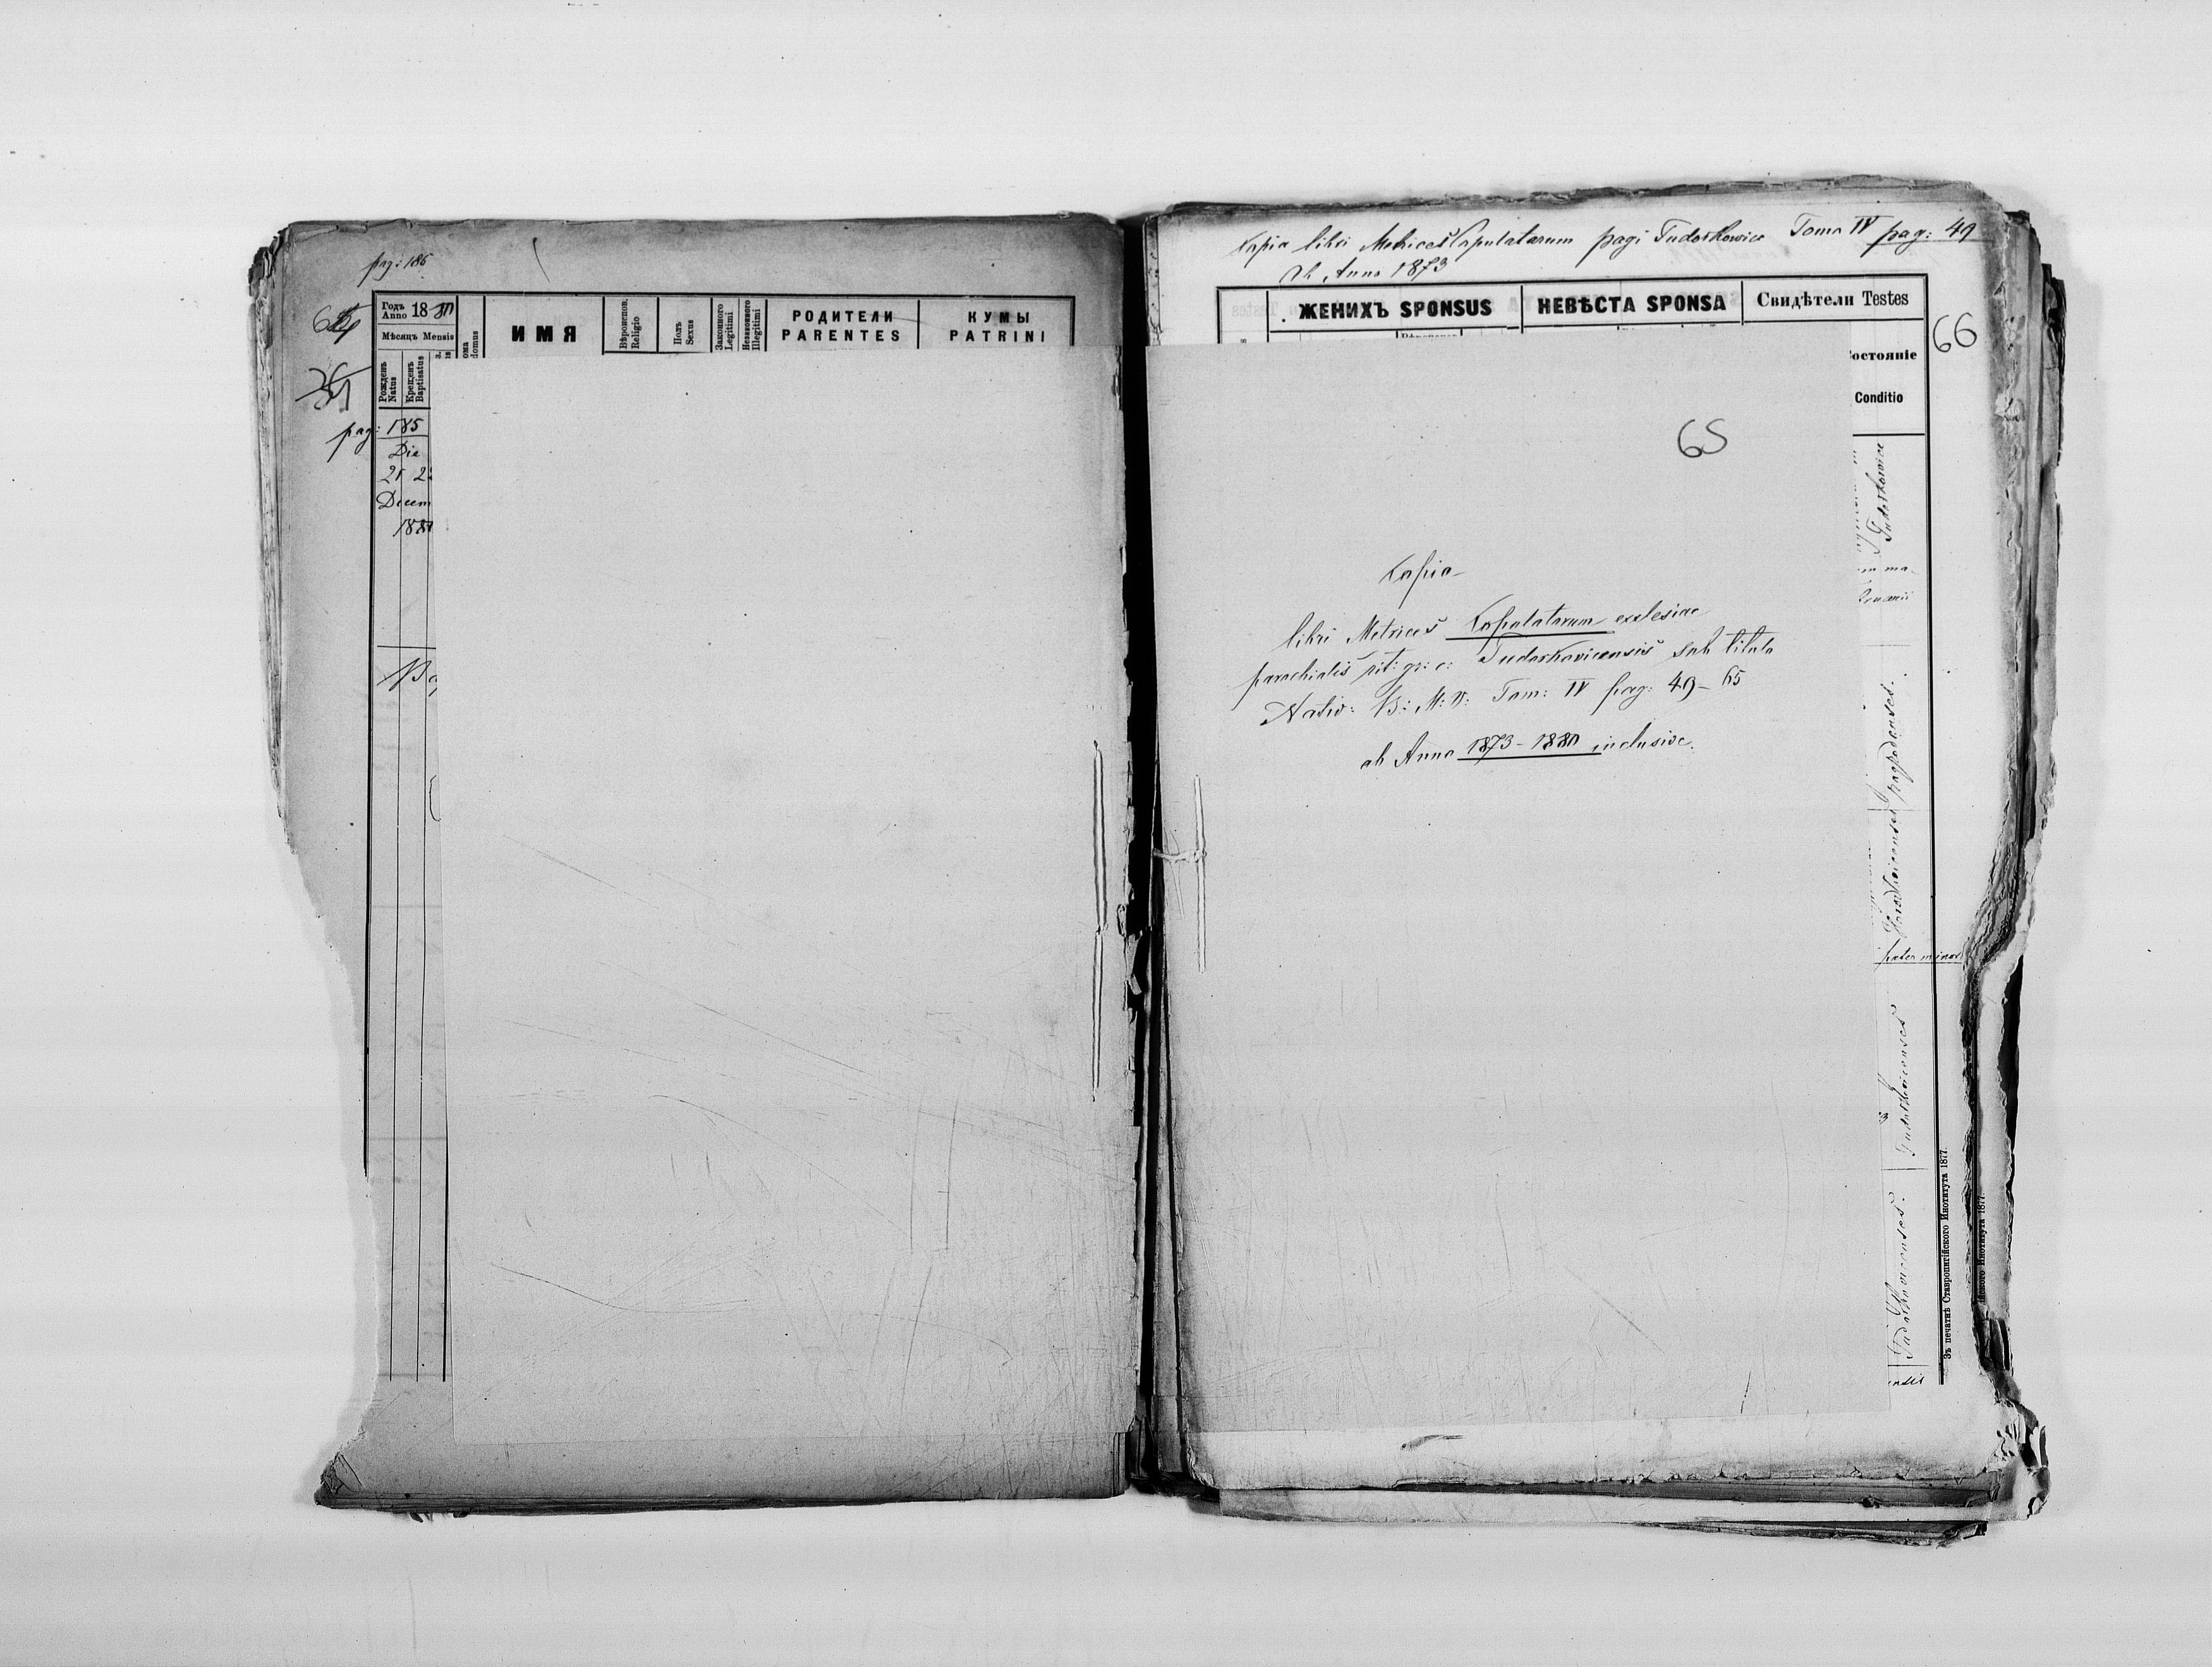 pag: 186
Годъ Anno 1880
Мѣсяцъ Mensis
Рожденъ Natus
Крещенъ Baptisatus
domus
ИМЯ
Вѣроиспов. Religio
Полъ Sexus
Законного Legitimi
Незаконного Illegitimi
РОДИТЕЛИ
PARENTES
КУМЫ
PATRINI
pag: 185
Die
21 2
Decem
1880
Kopia libri Metrices Copulatorum pagi Tudorkowice Tomo IV pag: 49
Ab Anno 1873
ЖЕНИХЪ SPONSUS
НЕВѢСТА SPONSA
Свидѣтели Testes
66
остояніе
Conditio
65
Kopia
libri Metrices Copulatorum ecclesiae
parochialis rit: gr: c: Tudorkovicensis sub titulo
Nativ: B: M: V: Tom: IV pag: 49 - 65
ab Anno 1873 - 1880 inclusive.
Tudorkowice
pater minor
Tudorkovicenses
Tudorkovicenses.
Зъ печатнѣ Ставропигійского Института 1877.
Института 1877.